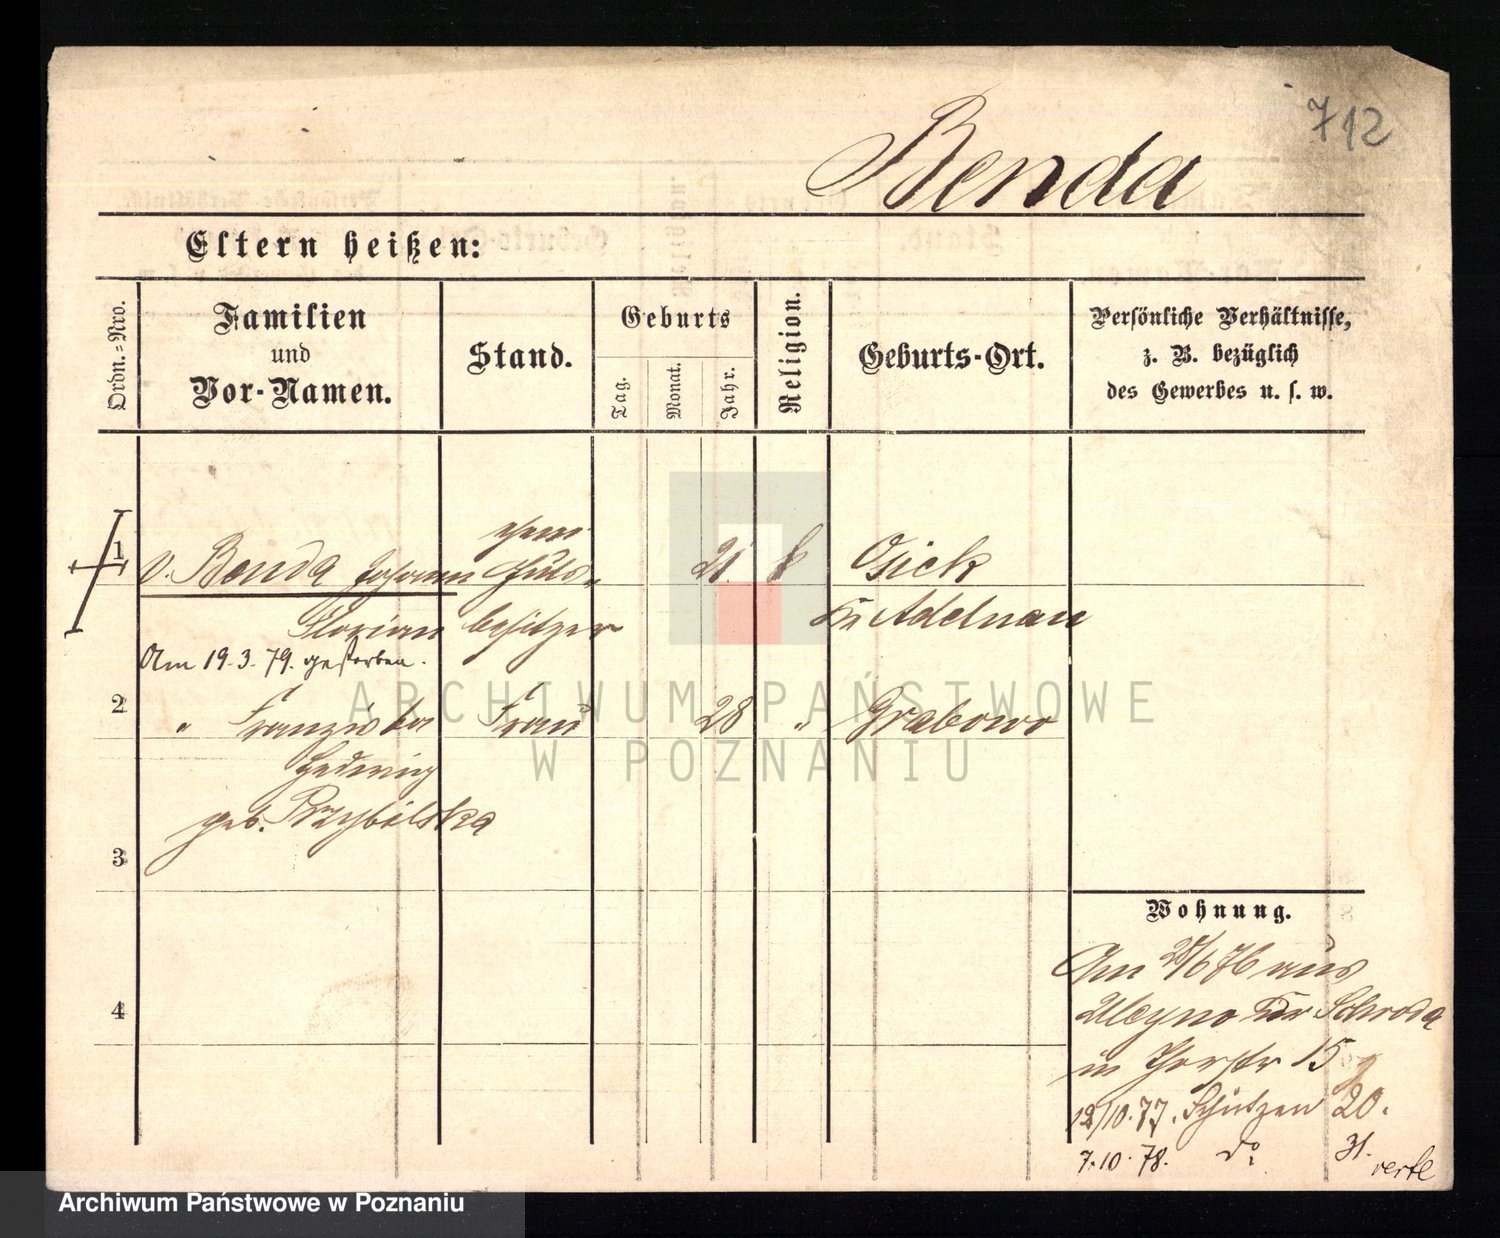 712
Benda
Eltern heißen:
Ordn.=Nro.
Familien
und
Vor-Namen.
Stand.
Geburts
Tag.
Monat.
Jahr.
Religion.
Geburts-Ort.
Persönliche Verhältnisse,
z. B. bezüglich
des Gewerbes u. s. w.
1
v. Benda Johann
Florian
Guts-
besitzer
21
k
Osiek
Kr Adelnau
Am 19.3.79. gestorben.
2
" Franziska
Hedwig
geb. Przybilska
Frau
28
"
Grabowo
3
4
Wohnung.
Am 28/6 76 aus
Uleyno Kr Schroda
in Thorstr 15
12/10.77. Schützen 20.
7.10.78. do 31.
verte
ARCHIWUM PAŃSTWOWE
W POZNANIU
Archiwum Państwowe w Poznaniu